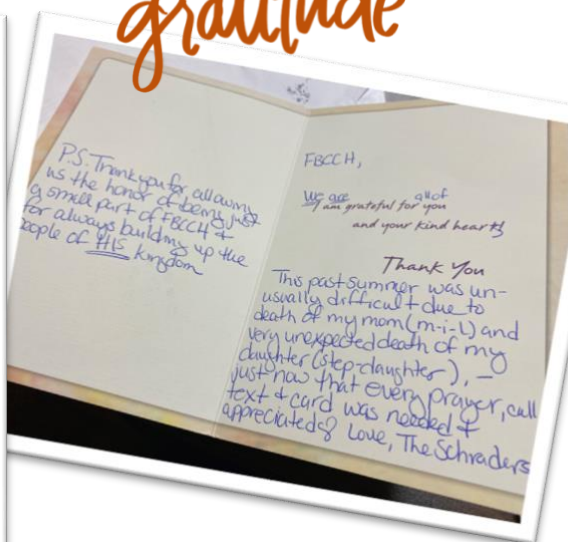 gratitude
P.S. Thank you for allowing
us the honor of being just
a small part of FBCCH &
for always building up the
people of HIS kingdom
FBCCH,
We are all of
I am grateful for you
and your kind hearts
Thank You
This past summer was un-
usually difficult due to
death of my mom (m-i-L) and
very unexpected death of my
daughter (step-daughter), –
just now that every prayer, call
text & card was needed &
appreciated! Love, The Schraders